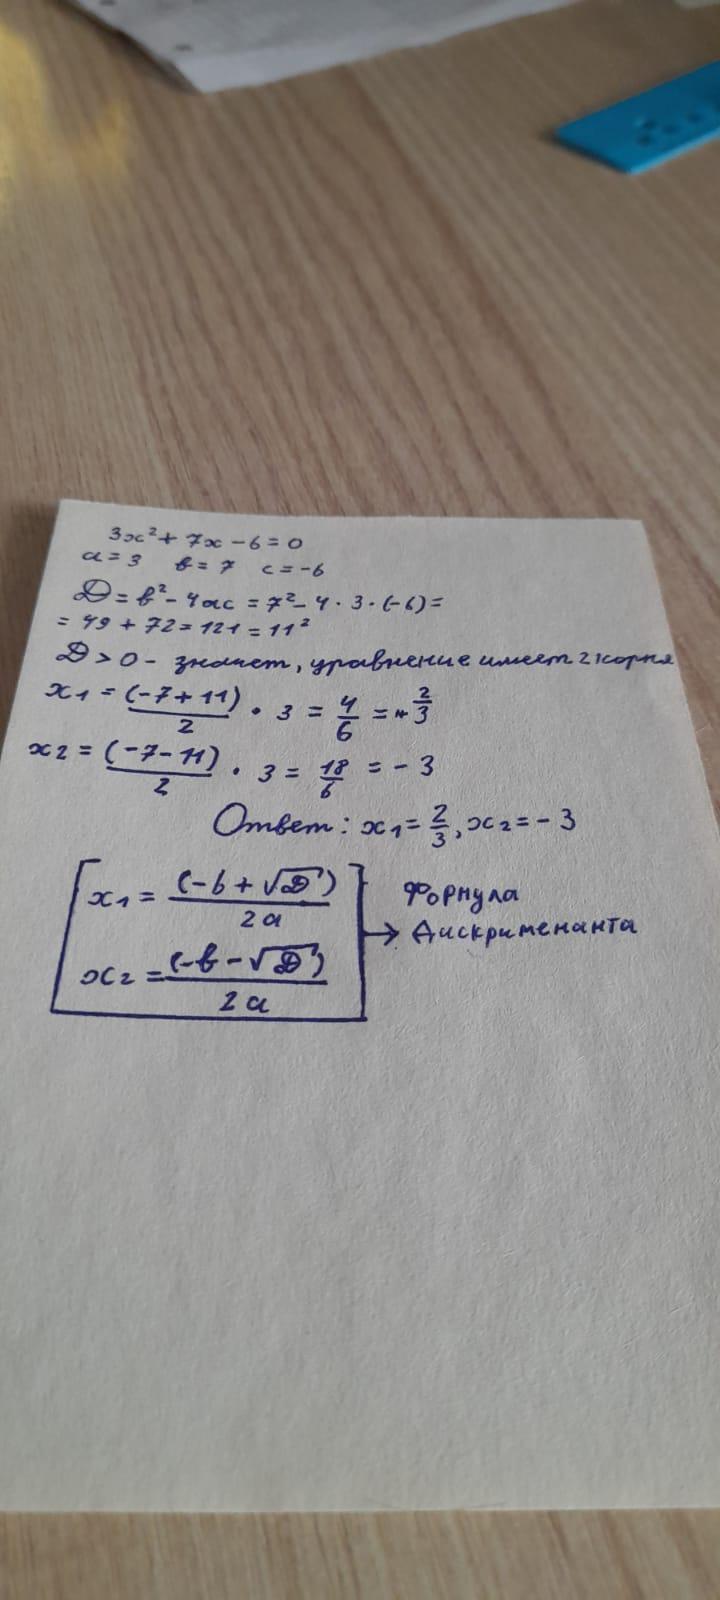 3x² + 7x - 6 = 0
a = 3 в = 7 c = -6
D = в² - 4ac = 7² - 4 · 3 · (-6) =
= 49 + 72 = 121 = 11²
D > 0 - значит, уравнение имеет 2 корня
x₁ = (-7 + 11)/2 · 3 = 4/6 = 2/3
x₂ = (-7 - 11)/2 · 3 = 18/6 = - 3
Ответ: x₁ = 2/3, x₂ = - 3
x₁ = (-b + √D)/2a
x₂ = (-в - √D)/2a
Формула
→ Дискрименанта